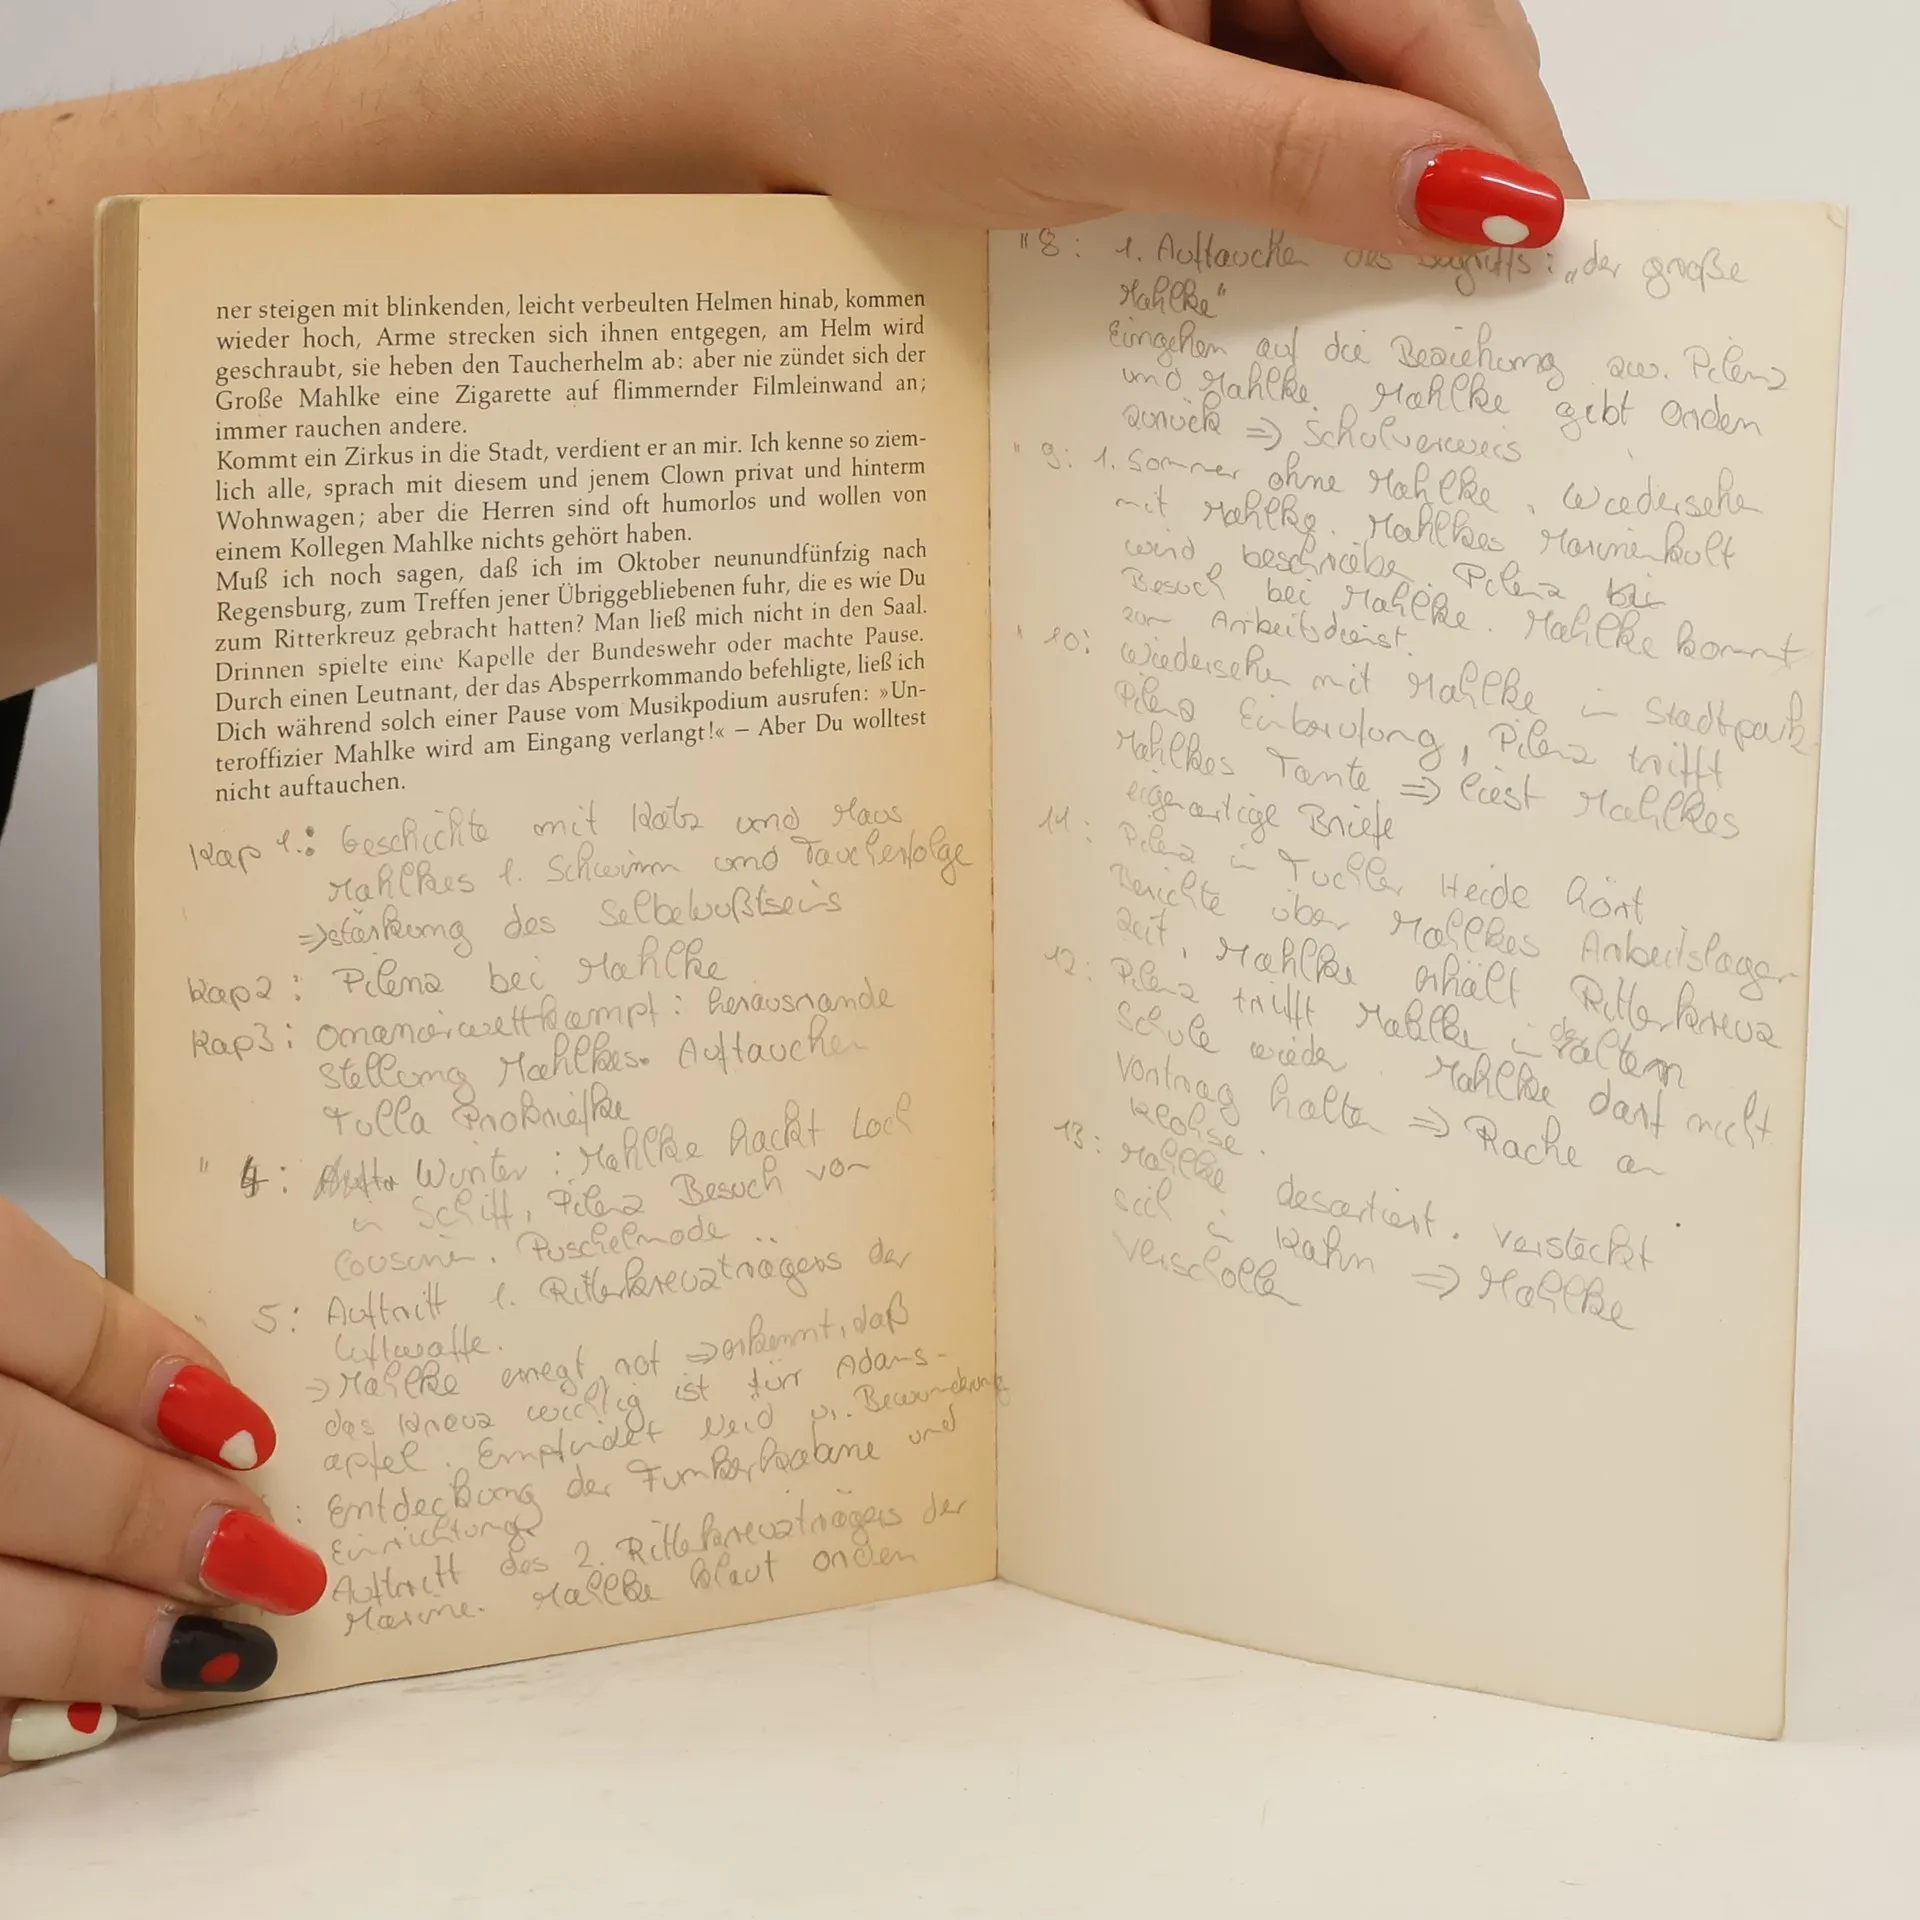 ner steigen mit blinkenden, leicht verbeulten Helmen hinab, kommen
wieder hoch, Arme strecken sich ihnen entgegen, am Helm wird
geschraubt, sie heben den Taucherhelm ab: aber nie zündet sich der
Große Mahlke eine Zigarette auf flimmernder Filmleinwand an;
immer rauchen andere.
Kommt ein Zirkus in die Stadt, verdient er an mir. Ich kenne so ziem-
lich alle, sprach mit diesem und jenem Clown privat und hinterm
Wohnwagen; aber die Herren sind oft humorlos und wollen von
einem Kollegen Mahlke nichts gehört haben.
Muß ich noch sagen, daß ich im Oktober neunundfünfzig nach
Regensburg, zum Treffen jener Übriggebliebenen fuhr, die es wie Du
zum Ritterkreuz gebracht hatten? Man ließ mich nicht in den Saal.
Drinnen spielte eine Kapelle der Bundeswehr oder machte Pause.
Durch einen Leutnant, der das Absperrkommando befehligte, ließ ich
Dich während solch einer Pause vom Musikpodium ausrufen: »Un-
teroffizier Mahlke wird am Eingang verlangt!« – Aber Du wolltest
nicht auftauchen.
Kap 1.: Geschichte mit Katz und Maus
Mahlkes 1. Schwimm und Taucherfolge
=> stärkung des Selbewußtseins
Kap2: Pilenz bei Mahlke
Kap3: Onanierwettkampf: herausrande
stellung Mahlkes. Auftauchen
Tulla Prokriefke
" 4: Winter: Mahlke hackt Loch
in Schiff, Pilenz Besuch von
Cousine. Puschelmode
5: Auftritt 1. Ritterkreuzträgers der
Luftwaffe.
=> Mahlke erregt, rot => erkennt, daß
das Kreuz wichtig ist für Adams-
apfel. Empfindet Neid u. Bewunderung
: Entdeckung der Funkerkabine und
Einrichtung
Auftritt des 2. Ritterkreuzträgers der
Marine. Mahlke klaut orden
" 8: 1. Auftauchen des Begriffs: „der große
Mahlke"
Eingehen auf die Beziehung zw. Pilenz
und Mahlke. Mahlke gibt orden
zurück => Schulverweis
" 9: 1. Sommer ohne Mahlke, Wiedersehen
mit Mahlke. Mahlkes Marienkult
wird beschrieben. Pilenz bei
Besuch bei Mahlke. Mahlke kommt
zum Arbeitsdienst.
" 10: Wiedersehen mit Mahlke in Stadtpark
Pilenz Einberufung, Pilenz trifft
Mahlkes Tante => liest Mahlkes
eigenartige Briefe
11: Pilenz in Tuchler Heide hört
Berichte über Mahlkes Arbeitslager
zeit, Mahlke erhält Ritterkreuz
12: Pilenz trifft Mahlke in der altern
Schule wieder. Mahlke darf nicht
Vortrag halten => Rache an
Klohse.
13: Mahlke desertiert. versteckt
sich in Kahn => Mahlke
verschollen